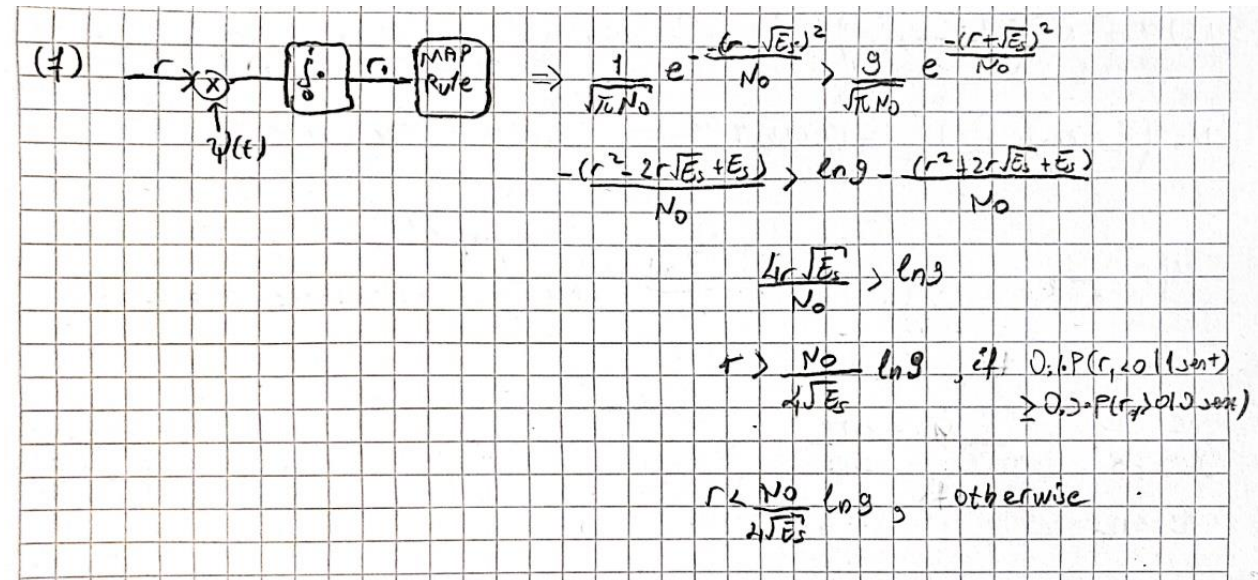 (f) r X ∫₀ⁱ • r₁ MAP Rule ⇒ 1/√(πN₀) e^(-(r - √Es)²/N₀) > 9/√(πN₀) e^(-(r+√Es)²/N₀)
ψ(t)
-(r² - 2r√Es + Es)/N₀ > ln9 - (r² + 2r√Es + Es)/N₀
4r√Es/N₀ > ln9
r > N₀/4√Es ln9, if 0.1.P(r₁<0|1 sent)
≥ 0.9.P(r₁>0|0 sent)
r < N₀/4√Es ln9, otherwise